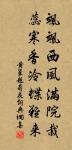 颯颯西風滿院栽
蕊寒香冷蝶難來
黃巢題菊花詞典網集